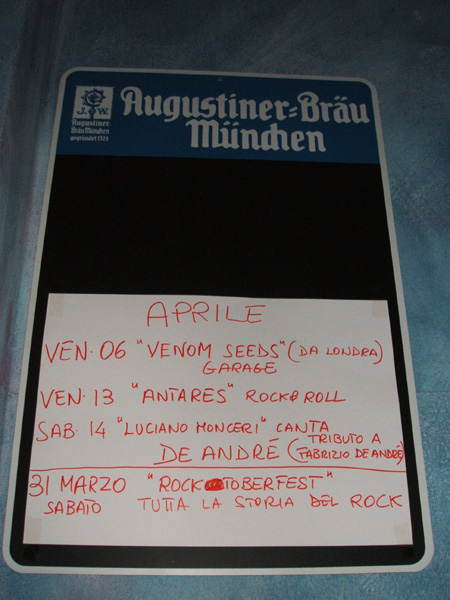 J.W.
Augustiner-
Bräu München
gegründet 1328
Augustiner-Bräu
München
APRILE
VEN. 06 "VENOM SEEDS" (DA LONDRA)
GARAGE
VEN. 13 "ANTARES" ROCK & ROLL
SAB. 14 "LUCIANO MONCERI" CANTA
DE ANDRÉ (TRIBUTO A
FABRIZIO DE ANDRÉ)
31 MARZO "ROCKTOBERFEST"
SABATO TUTTA LA STORIA DEL ROCK